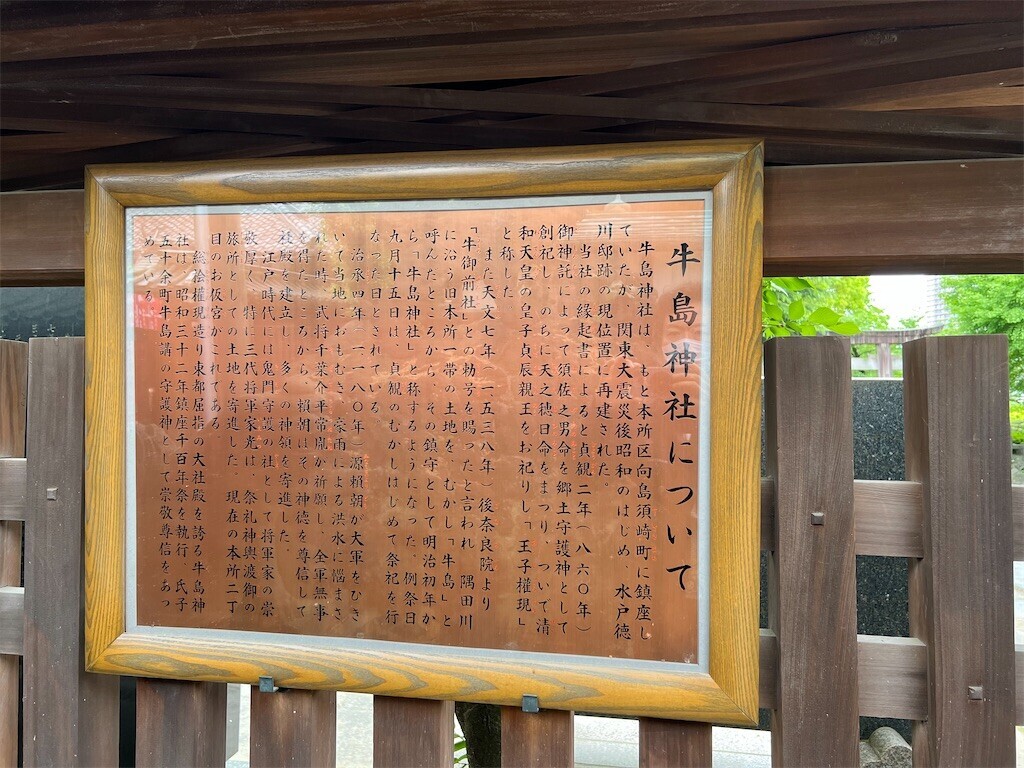 牛島神社について
牛島神社は、もと本所区向島須崎町に鎮座し
ていたが、関東大震災後昭和のはじめ、水戸徳
川邸跡の現位置に再建された。
当社の縁起書によると貞観二年（八六〇年）
御神託によって須佐之男命を郷土守護神として
創祀し、のちに天之穂日命をまつり、ついで清
和天皇の皇子貞辰親王をお祀りし「王子權現」
と称した
また天文七年（一五三八年）後奈良院より
「牛御前社」との勅号を賜ったと言われ 隅田川
に沿う旧本所一帯の土地を、むかし「牛島」と
呼んだところから、その鎮守として明治初年か
ら「牛島神社」と称するようになった、例祭日
九月十五日は、貞観のむかしはじめて祭祀を行
なった日とされている
治承四年（一一八〇年）源頼朝が大軍をひき
いて当地におもむき、豪雨による洪水に悩まさ
れた時、武将千葉介平常胤が祈願し、全軍無事
を得たところから、頼朝はその神徳を尊信して
社殿を建立し、多くの神領を寄進した。
江戸時代には鬼門守護の社として将軍家の崇
敬厚く、特に三代将軍家光は、祭礼神輿渡御の
旅所としての土地を寄進した、現在の本所二丁
目のお仮宮がこれである、
総桧權現造り東都屈指の大社殿を誇る牛島神
社は、昭和三十二年鎮座千百年祭を執行、氏子
五十余町牛島講の守護神として崇敬尊信をあつ
めている